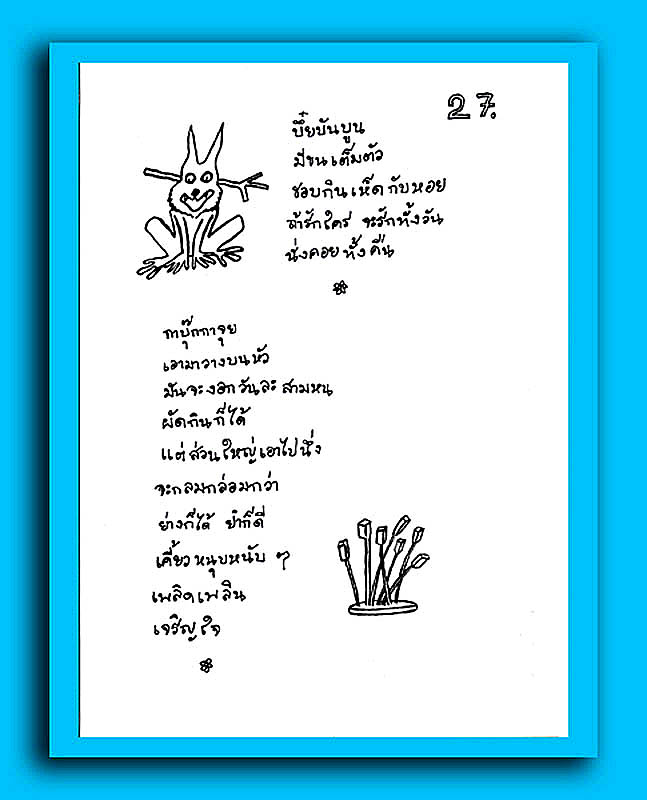 27.
บึ๋ยบันบูน
มีขนเต็มตัว
ชอบกินเห็ดกับหอย
ถ้ารักใคร จะรักทั้งวัน
นั่งคอยทั้งคืน
กาบุ๊กกาจุย
เอามาวางบนหัว
มันจะงอกวันละสามหน
ผัดกินก็ได้
แต่ส่วนใหญ่เอาไปนึ่ง
จะกลมกล่อมกว่า
ย่างก็ได้ ยำก็ดี
เคี้ยวหนุบหนับ ๆ
เพลิดเพลิน
เจริญใจ